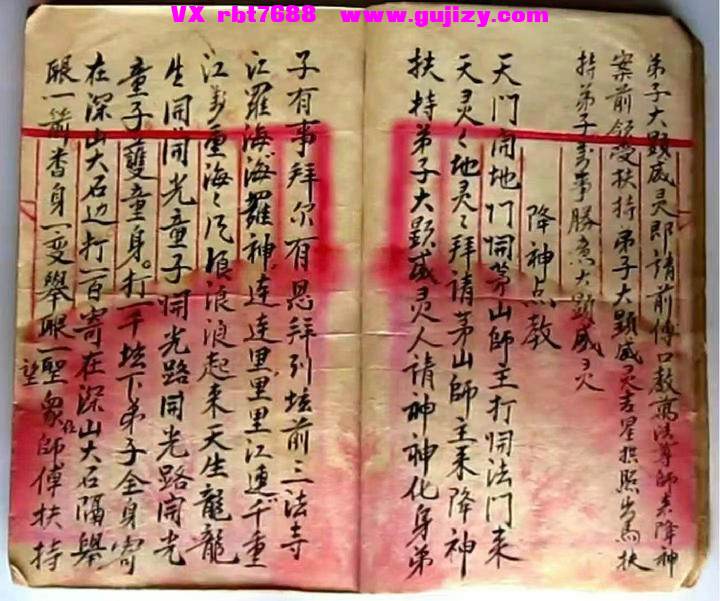 VX rbt7688 www.gujizy.com
弟子大顕威灵即請前傅口教萬法尊師来降神
案前領受扶持弟子大顕威灵吉星拱照出馬扶
持弟子事勝意大顕威灵
降神点教
天门開地门開茅山師主打開法门来
天灵々地灵々拜請茅山師主来降神
扶持弟子大顕威灵人請神神化身弟
子有事拜尔有恩拜到坛前三法寺
江羅海海羅神連連里里里江連千重
江重海々浪浪起来天生龍龍
生開開光童子開光路開光路開光
童子雙童身打一千坛下弟子全身寄
在深山大石边打一百寄在深山大石隔舉
眼一箭香身一变舉眼一望聖象師傅扶持